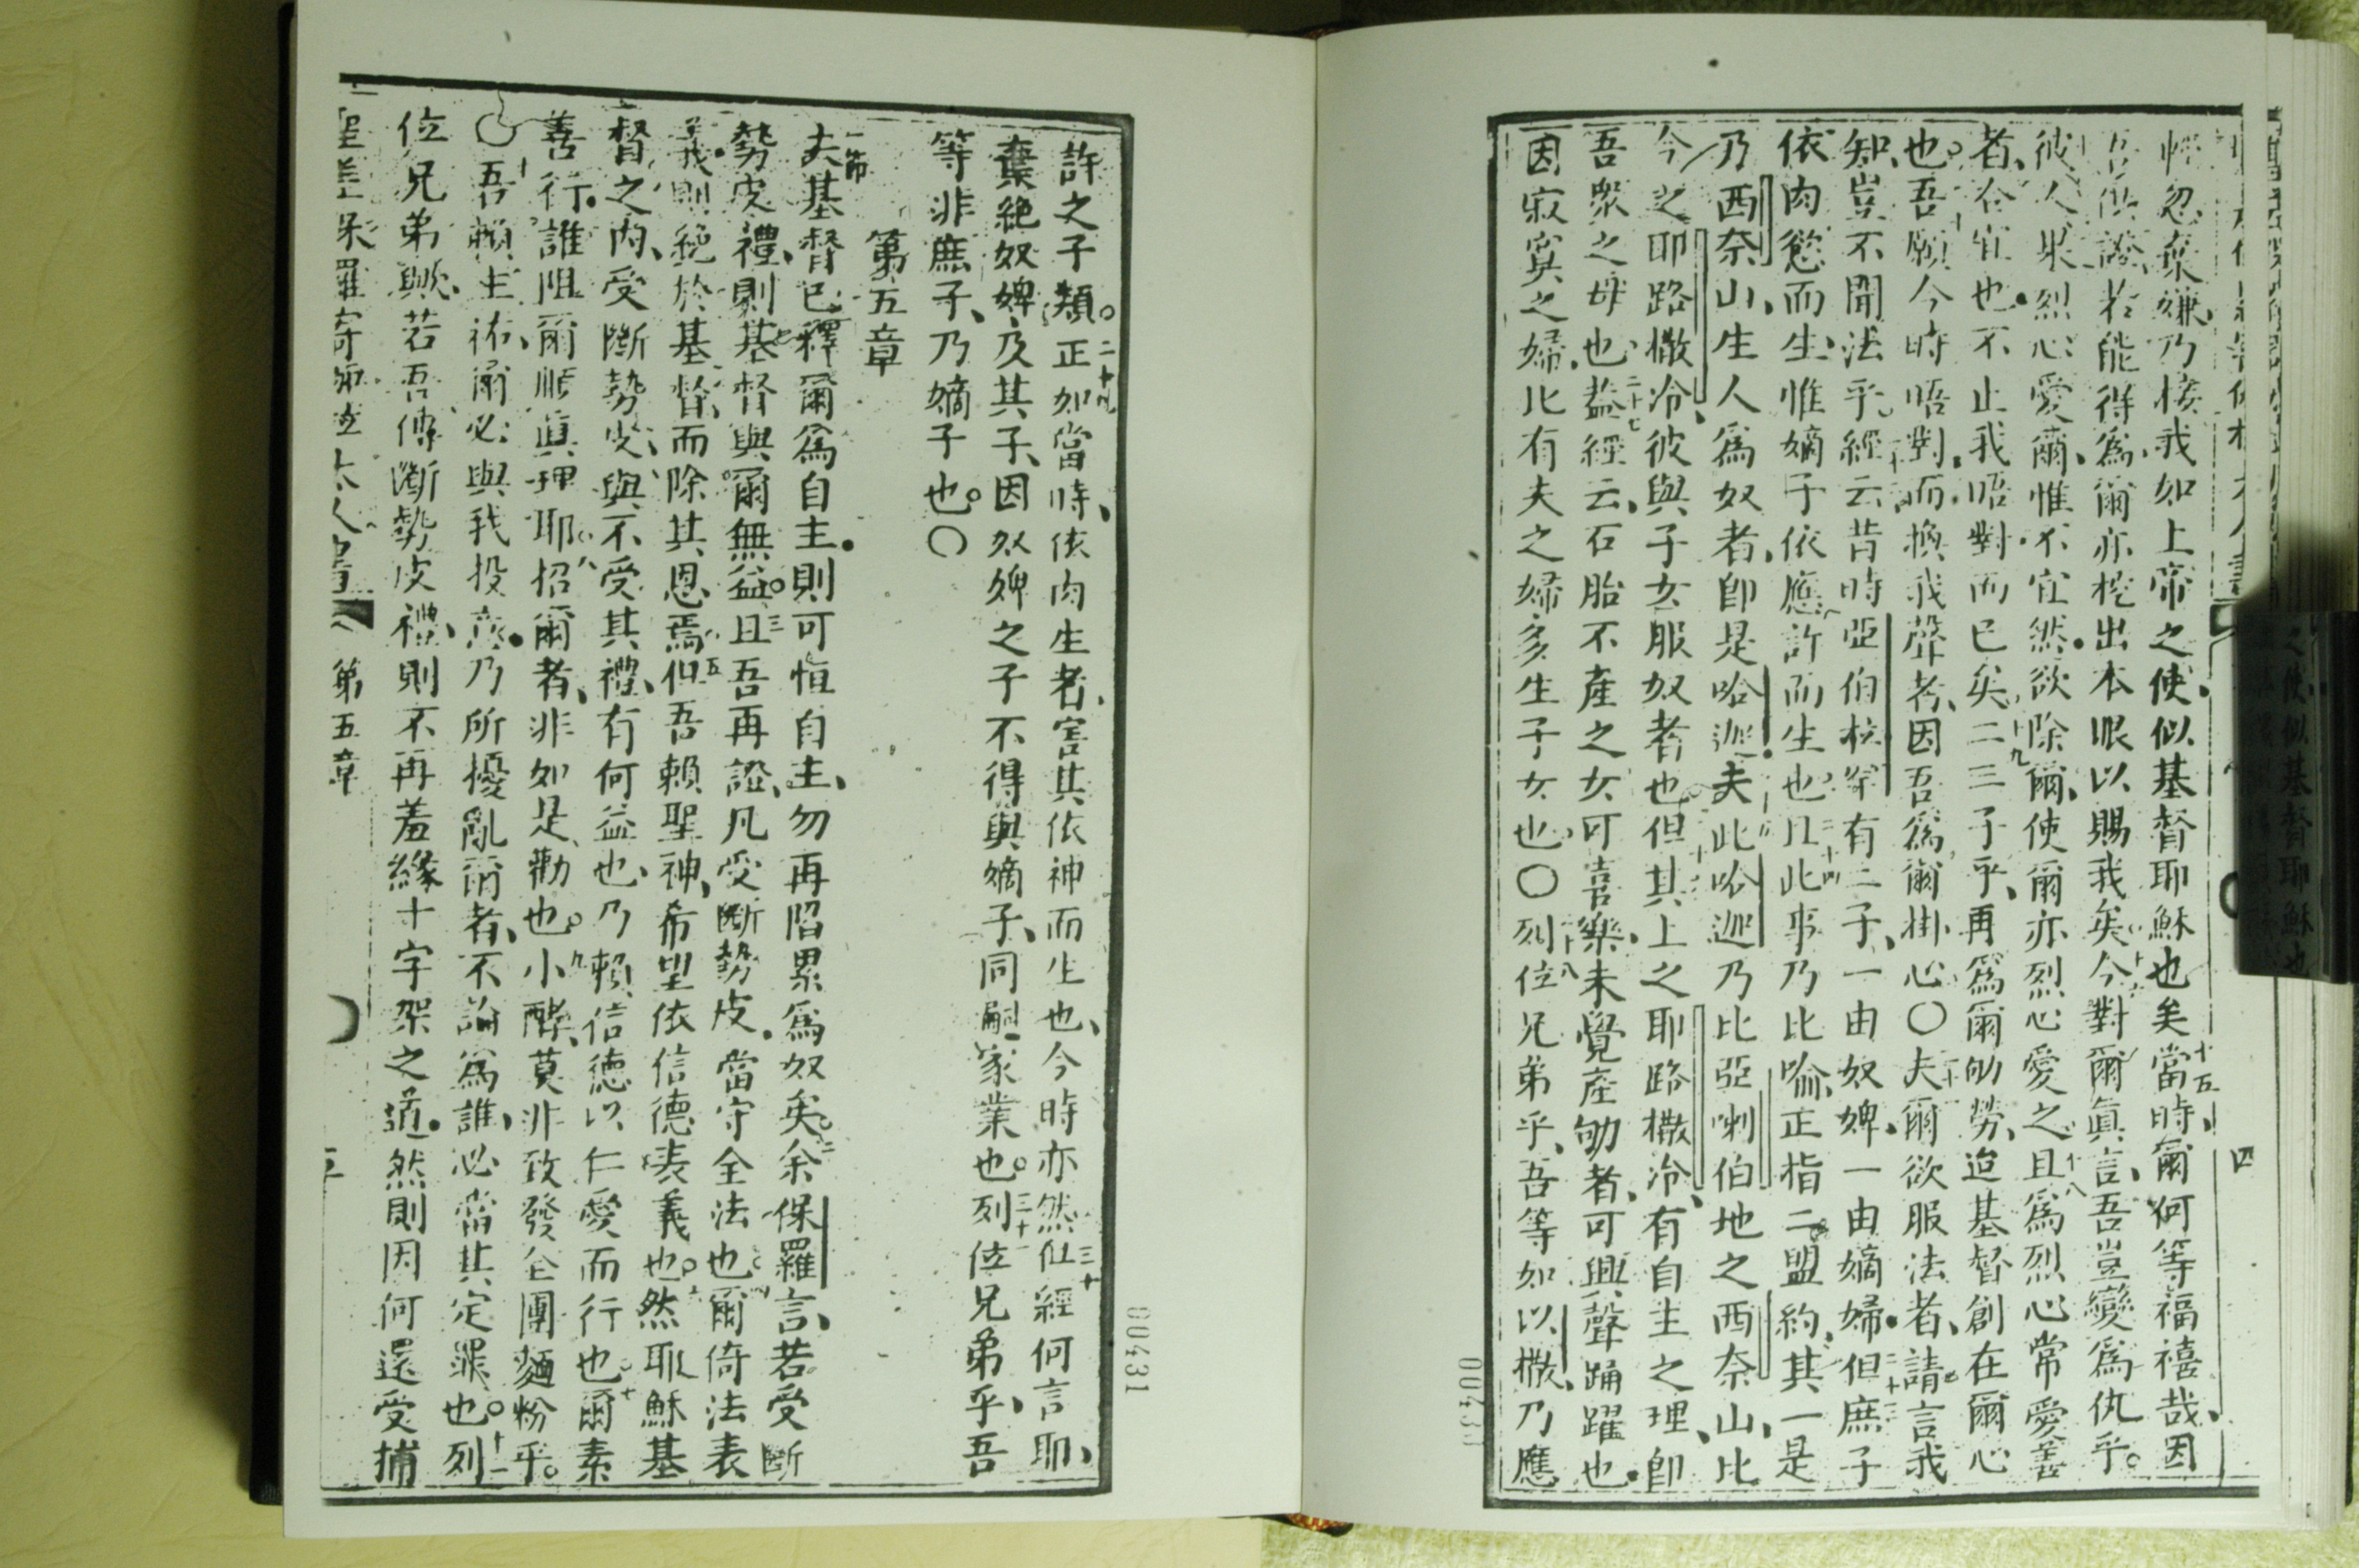 忽棄嫌乃接我如上帝之使似基督耶穌也矣十五當時爾何等福禧哉因
吾供證若能得爲爾亦挖出本眼以賜我矣今對爾眞言吾豈變爲仇乎
彼人眾烈心愛爾惟不宜然欲除爾使爾亦烈心愛之且十八爲烈心常愛善
者合宜也不止我唔對而已矣十九二三子乎再爲爾劬勞迨基督創在爾心
也吾願今時唔對而換我聲者因吾爲爾掛心〇夫爾欲服法者請言我
知豈不聞法乎經云昔時亞伯有二子一由奴婢一由嫡婦但庶子
依肉慾而生惟嫡子依應許而生也且此事乃比喻正指二盟約其一是
乃西奈山生人爲奴者卽是哈迦夫此哈迦乃比亞喇伯地之西奈山比
今之耶路撒冷彼與子女服奴者也但其上之耶路撒冷有自主之理卽
吾眾之母也二十七蓋經云石胎不產之女可喜樂未覺產劬者可興聲踊躍也
因寂寞之婦比有夫之婦多生子女也〇列位兄弟乎吾等如以撒乃應
四
許之子類二十九正如當時依肉生者害其依神而生也今時亦然三十但經何言耶
棄絶奴婢及其子因奴婢之子不得與嫡子同嗣家業也列位兄弟乎吾
等非庶子乃嫡子也〇
第五章
一節夫基督已釋爾爲自主則可恒自主勿再陷累爲奴矣二余保羅言若受斷
勢皮禮則基督與爾無益三且吾再證凡受斷勢皮當守全法也爾倚法表
義則絶於基督而除其恩焉五但吾賴聖神希望依信德表義也然耶穌基
督之內受斷勢皮與不受其禮有何益也乃賴信德以仁愛而行也爾素
善行誰阻爾順眞理耶八招爾者非如是勸也九小酵莫非致發仝團麵粉乎
十吾賴主祐爾必與我投意乃所擾亂爾者不論爲誰必當其定罪也十一列
位兄弟歟若吾傳斷勢皮禮則不再羞緣十字架之道然則因何還受捕
聖差保羅寄 太人書 第五章
00431